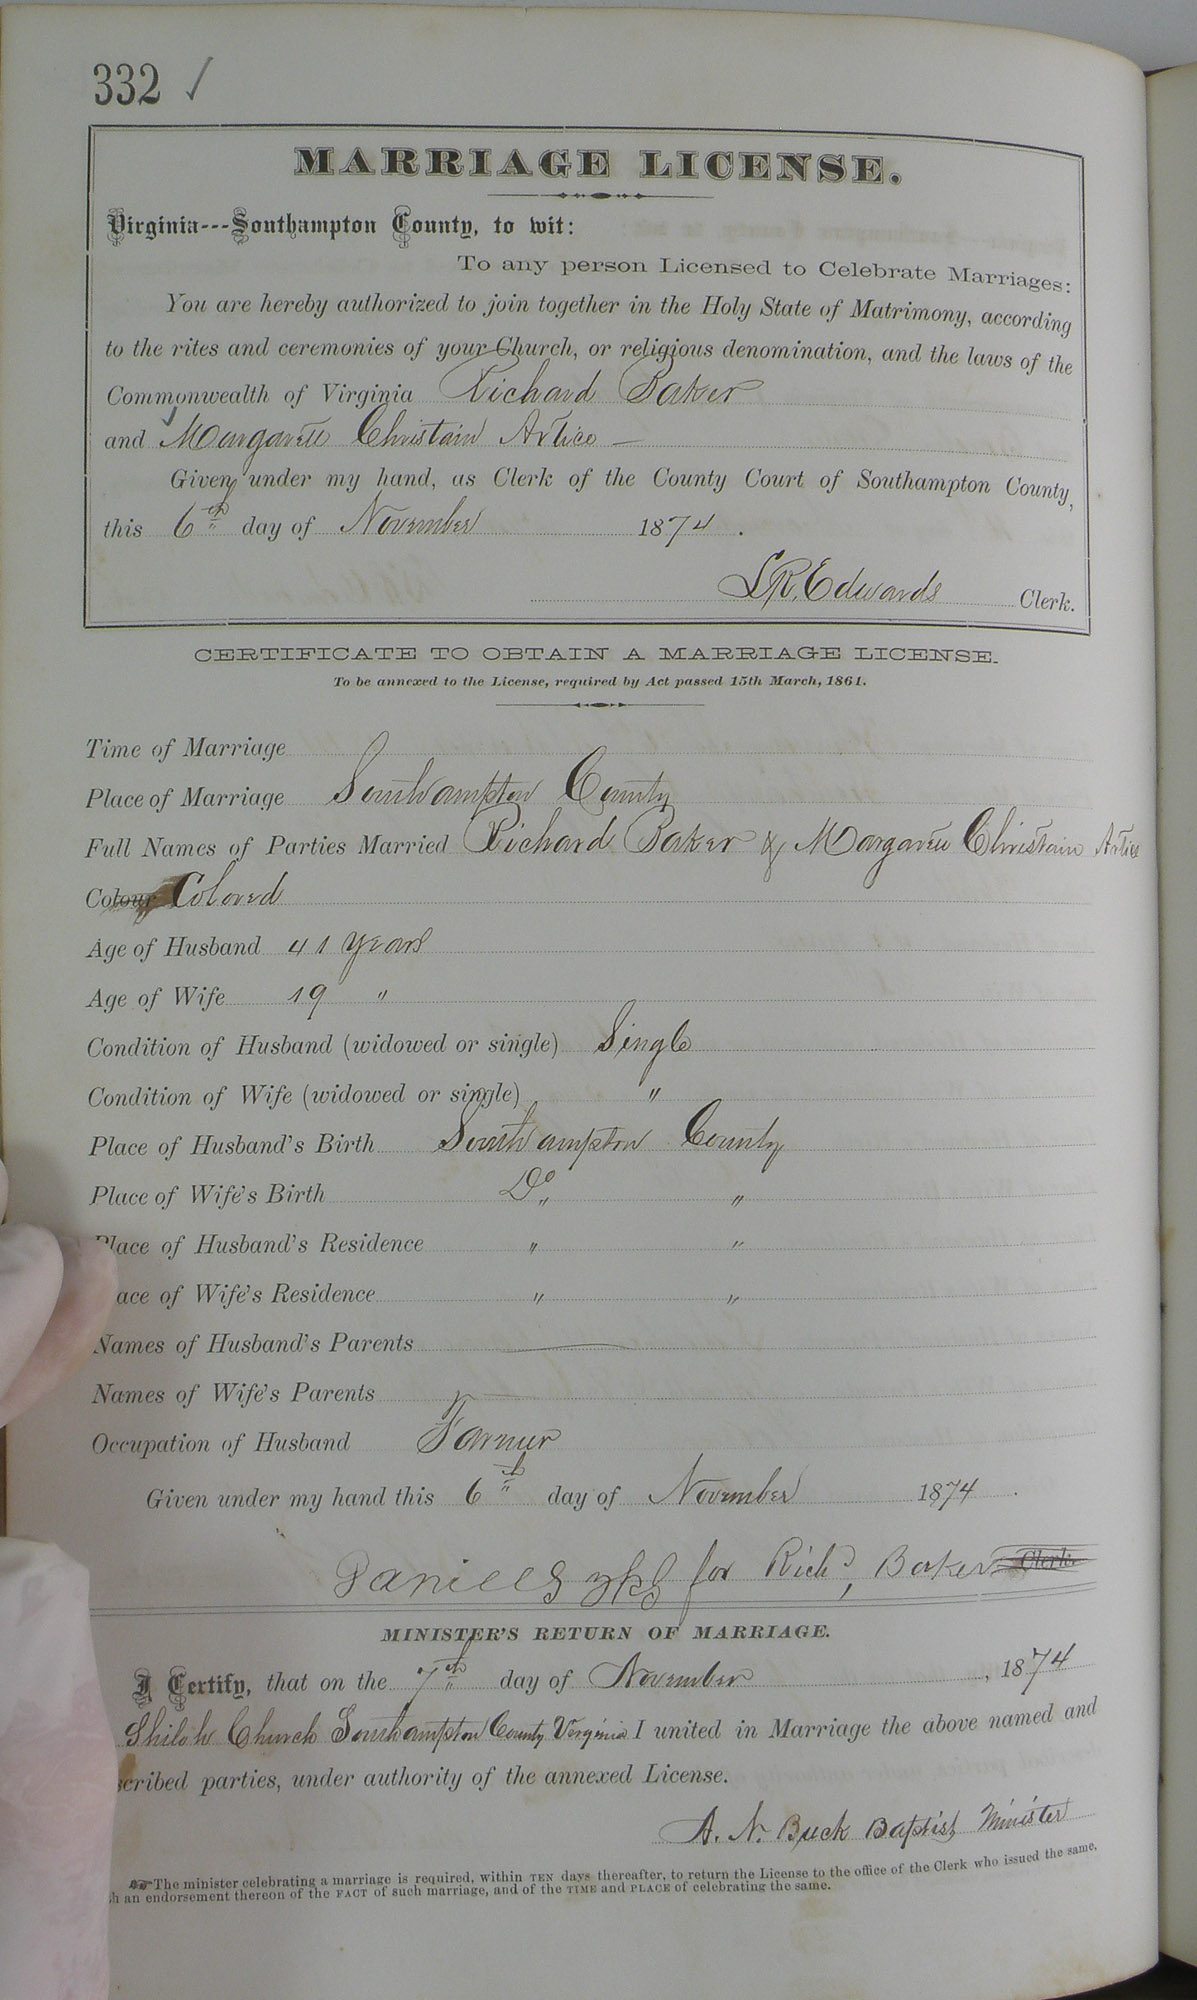 332 ✓
MARRIAGE LICENSE.
Virginia---Southampton County, to wit:
To any person Licensed to Celebrate Marriages:
You are hereby authorized to join together in the Holy State of Matrimony, according
to the rites and ceremonies of your Church, or religious denomination, and the laws of the
Commonwealth of Virginia Richard Baker
and Margarett Christain Artice —
Given under my hand, as Clerk of the County Court of Southampton County,
this 6th day of November 1874.
L R. Edwards Clerk.
CERTIFICATE TO OBTAIN A MARRIAGE LICENSE.
To be annexed to the License, required by Act passed 15th March, 1861.
Time of Marriage
Place of Marriage Southampton County
Full Names of Parties Married Richard Baker & Margarett Christain Artice
Colour Colored
Age of Husband 41 years
Age of Wife 19 "
Condition of Husband (widowed or single) Single
Condition of Wife (widowed or single) "
Place of Husband's Birth Southampton County
Place of Wife's Birth Do " "
Place of Husband's Residence " "
ace of Wife's Residence " "
Names of Husband's Parents —
Names of Wife's Parents —
Occupation of Husband Farmer
Given under my hand this 6th day of November 1874.
for Richd, Baker Clerk
MINISTER'S RETURN OF MARRIAGE.
I Certify, that on the 7th day of November, 1874
Shiloh Church Southampton County Verginia I united in Marriage the above named and
scribed parties, under authority of the annexed License.
A. N. Buck Baptist Minister
☞The minister celebrating a marriage is required, within TEN days thereafter, to return the License to the office of the Clerk who issued the same,
h an endorsement thereon of the FACT of such marriage, and of the TIME and PLACE of celebrating the same.